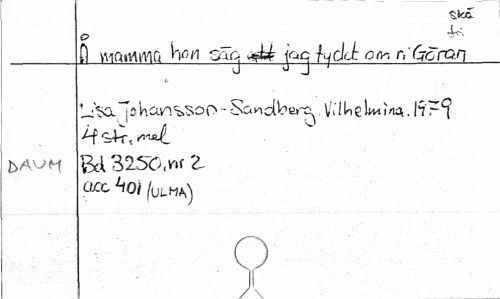 skå
fri
Å mamma hon såg jag tyckt om n' Göran
Lisa Johansson-Sandberg. Vilhelmina. 1979
4 str, mel
DAUM Bd 3250, nr 2
acc 401 (ULMA)